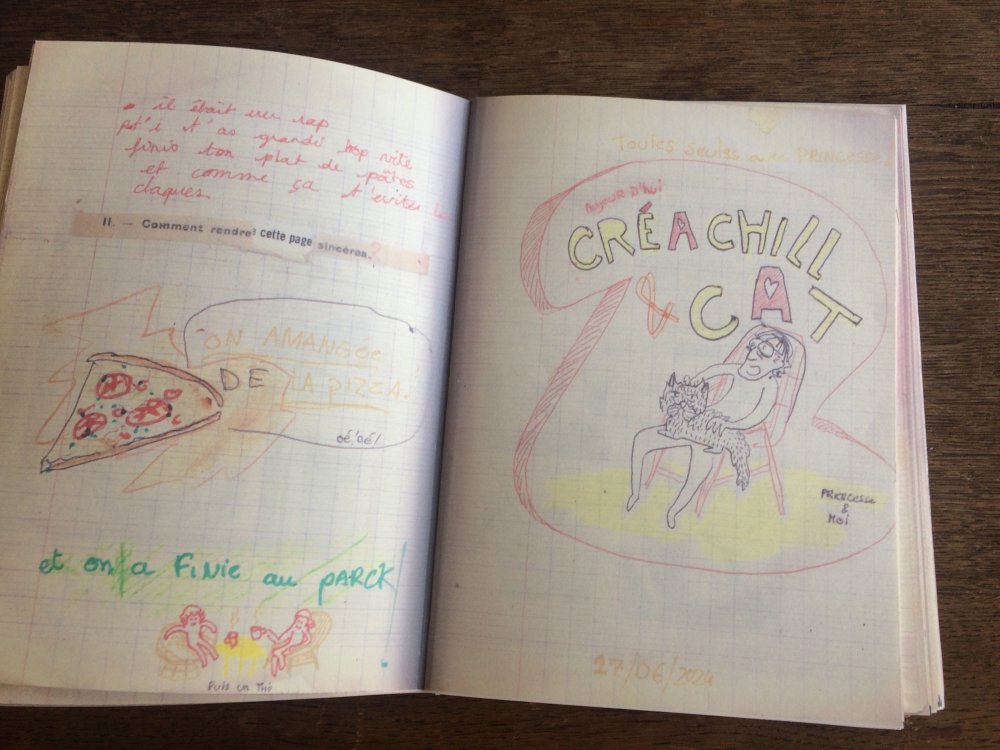 il était un rap
pt'i t'as grandi trop vite
finis ton plat de pâtes
et comme ça t'évites les
claques
II. — Comment rendre cette page sincères.?
ON AMANGÉe
DE LA PIZZA!
oé, oé!
et on a FiNie au pARCK!
PUIS UN Thé
Toutes seules avec PRINCESSE
Aujour D'hui
CRÉACHILL
& CAT
PRINCESSE
&
MOi
27/06/2024